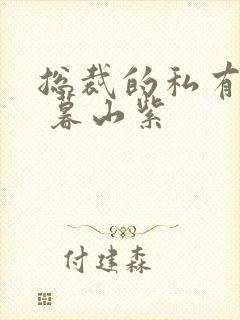 总裁的私有
暮山紫
付建森